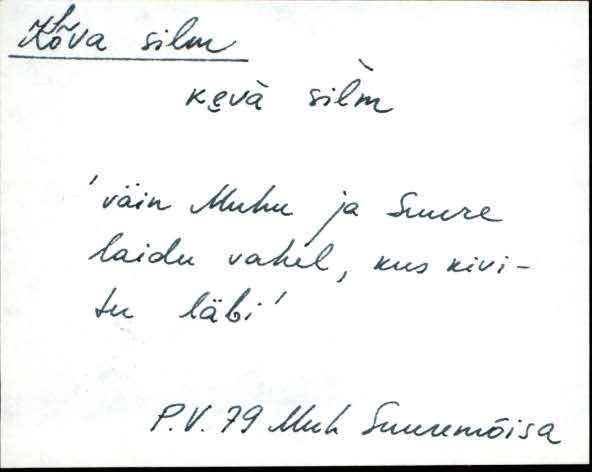 Kõva silm
ke̮và sil̀m
'väin Muhu ja Suure
laidu vahel, kus kivi-
tu läbi'
P.V. 79 Muh Suuremõisa